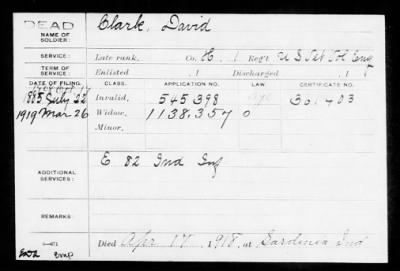 DEAD
NAME OF SOLDIER:
Clark, David
SERVICE:
Late rank, Co. H, 1 Reg't U S Vet Vol Eng
TERM OF SERVICE:
Enlisted , 1 Discharged , 1
DATE OF FILING. CLASS. APPLICATION NO. LAW CERTIFICATE NO.
1885 July 22 Invalid, 545 398
1919 Mar 26 Widow, 1138.357 0
Minor,
ADDITIONAL SERVICES:
E 82 Ind Inf
REMARKS:
Died Apr 17, 1918, at Sardinia Ind